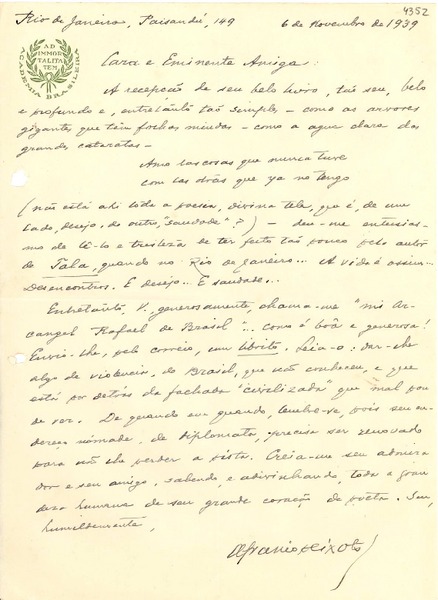 4352
Rio de Janeiro, Paisandú, 149 6 de Novembro de 1939
ACADEMIA BRASILEIRA
AD
IMMOR
TALITA
TEM
Cara e Eminente Amiga:
A recepção de seu belo livro, tão seu, belo
e profundo e, entretanto tão simples – como as arvores
gigantes que têm folhas miudas – como a agua clara das
grandes cataratas –
Amo las cosas que nunca tuve
con las otras que ya no tengo
(não está ahi toda a poesia, divina tela, que é, de um
lado, desejo, do outro, "saudade"?) – deu-me entusias-
mo de lê-lo e tristeza de ter feito tão pouco pelo autor
de Tala, quando no Rio de Janeiro... A vida é assim...
Desencontros. E desejo... E saudade...
Entretanto, V. generosamente, chama-me "mi Ar-
cangel Rafael de Brasil"... Como é bôa e generosa!
Envio-lhe, pelo correio, um librito. Leia-o: dar-lhe
algo de violencia, do Brasil, que não conheceu, e que
está por detrás da fachada "civilizada" que mal pou-
de ver. De quando em quando, lembre-se, pois seu en-
dereço nómade, de diplomata, precisa ser renovado
para não lhe perder a pista. Creia-me seu admira
dor e seu amigo, sabendo, e adivinhando, toda a gran
deza humana de seu grande coração de poeta. Seu,
humildemente,
Afranio Peixoto